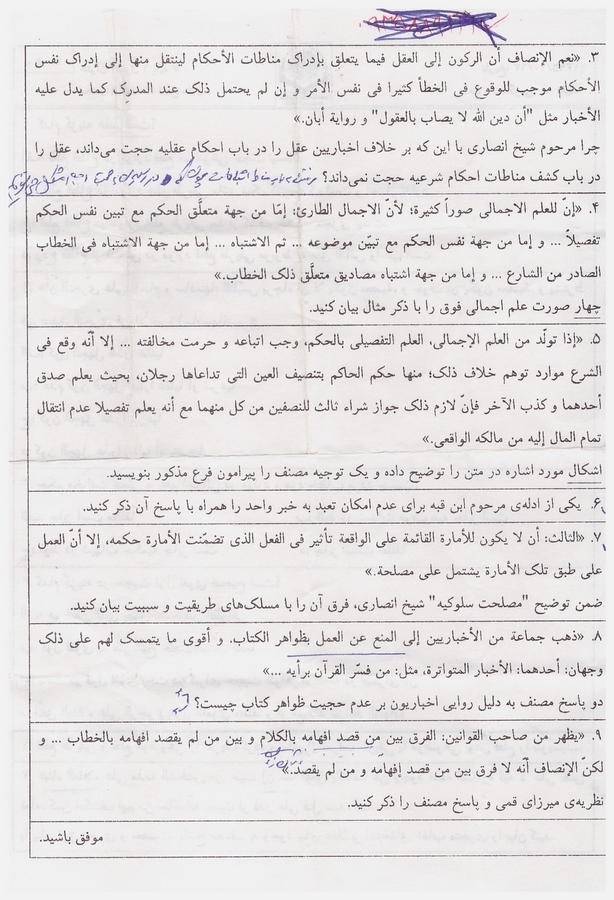 ۳. «نعم الإنصاف أن الركون إلى العقل فيما يتعلق بإدراك مناطات الأحكام لينتقل منها إلى إدراك نفس
الأحكام موجب للوقوع فى الخطأ كثيرا فى نفس الأمر و إن لم يحتمل ذلک عند المدرِک كما يدل عليه
الأخبار مثل "أن دين الله لا يصاب بالعقول" و رواية أبان.»
چرا مرحوم شیخ انصاری با این که بر خلاف اخباریین عقل را در باب احکام عقلیه حجت می‌داند، عقل را
در باب کشف مناطات احکام شرعیه حجت نمی‌داند؟
۴. «إنّ للعلم الاجمالى صوراً كثيرة؛ لأنّ الاجمال الطارئ: إمّا من جهة متعلَّق الحكم مع تبين نفس الحكم
تفصيلاً ... و إما من جهة نفس الحكم مع تبيّن موضوعه ... ثم الاشتباه ... إما من جهة الاشتباه فى الخطاب
الصادر من الشارع ... و إما من جهة اشتباه مصاديق متعلَّق ذلک الخطاب.»
چهار صورت علم اجمالی فوق را با ذکر مثال بیان کنید.
۵. «إذا تولّد من العلم الإجمالى، العلم التفصيلى بالحكم، وجب اتباعه و حرمت مخالفته ... إلا أنّه وقع فى
الشرع موارد توهم خلاف ذلک؛ منها حكم الحاكم بتنصيف العين التى تداعاها رجلان، بحيث يعلم صدق
أحدهما و كذب الآخر فإنّ لازم ذلک جواز شراء ثالث للنصفين من كل منهما مع أنه يعلم تفصيلا عدم انتقال
تمام المال إليه من مالكه الواقعى.»
اشکال مورد اشاره در متن را توضیح داده و یک توجیه مصنف را پیرامون فرع مذکور بنویسید.
۶. یکی از ادله‌ی مرحوم ابن قبه برای عدم امکان تعبد به خبر واحد را همراه با پاسخ آن ذکر کنید.
۷. «الثالث: أن لا يكون للأمارة القائمة على الواقعة تأثير فى الفعل الذى تضمّنت الأمارة حكمه، إلا أنّ العمل
على طبق تلک الأمارة يشتمل على مصلحة.»
ضمن توضیح "مصلحت سلوکیه" شیخ انصاری، فرق آن را با مسلک‌های طریقیت و سببیت بیان کنید.
۸. «ذهب جماعة من الأخباريين إلى المنع عن العمل بظواهر الكتاب. و أقوى ما يتمسک لهم على ذلک
وجهان: أحدهما: الأخبار المتواترة، مثل: من فسّر القرآن برأيه ...»
دو پاسخ مصنف به دلیل روایی اخباریون بر عدم حجیت ظواهر کتاب چیست؟
۹. «يظهر من صاحب القوانين: الفرق بين من قصد افهامه بالكلام و بين من لم يقصد افهامه بالخطاب ... و
لكنّ الإنصاف أنّه لا فرق بين من قصد إفهامه و من لم يقصد.»
نظریه‌ی میرزای قمی و پاسخ مصنف را ذکر کنید.
موفق باشید.